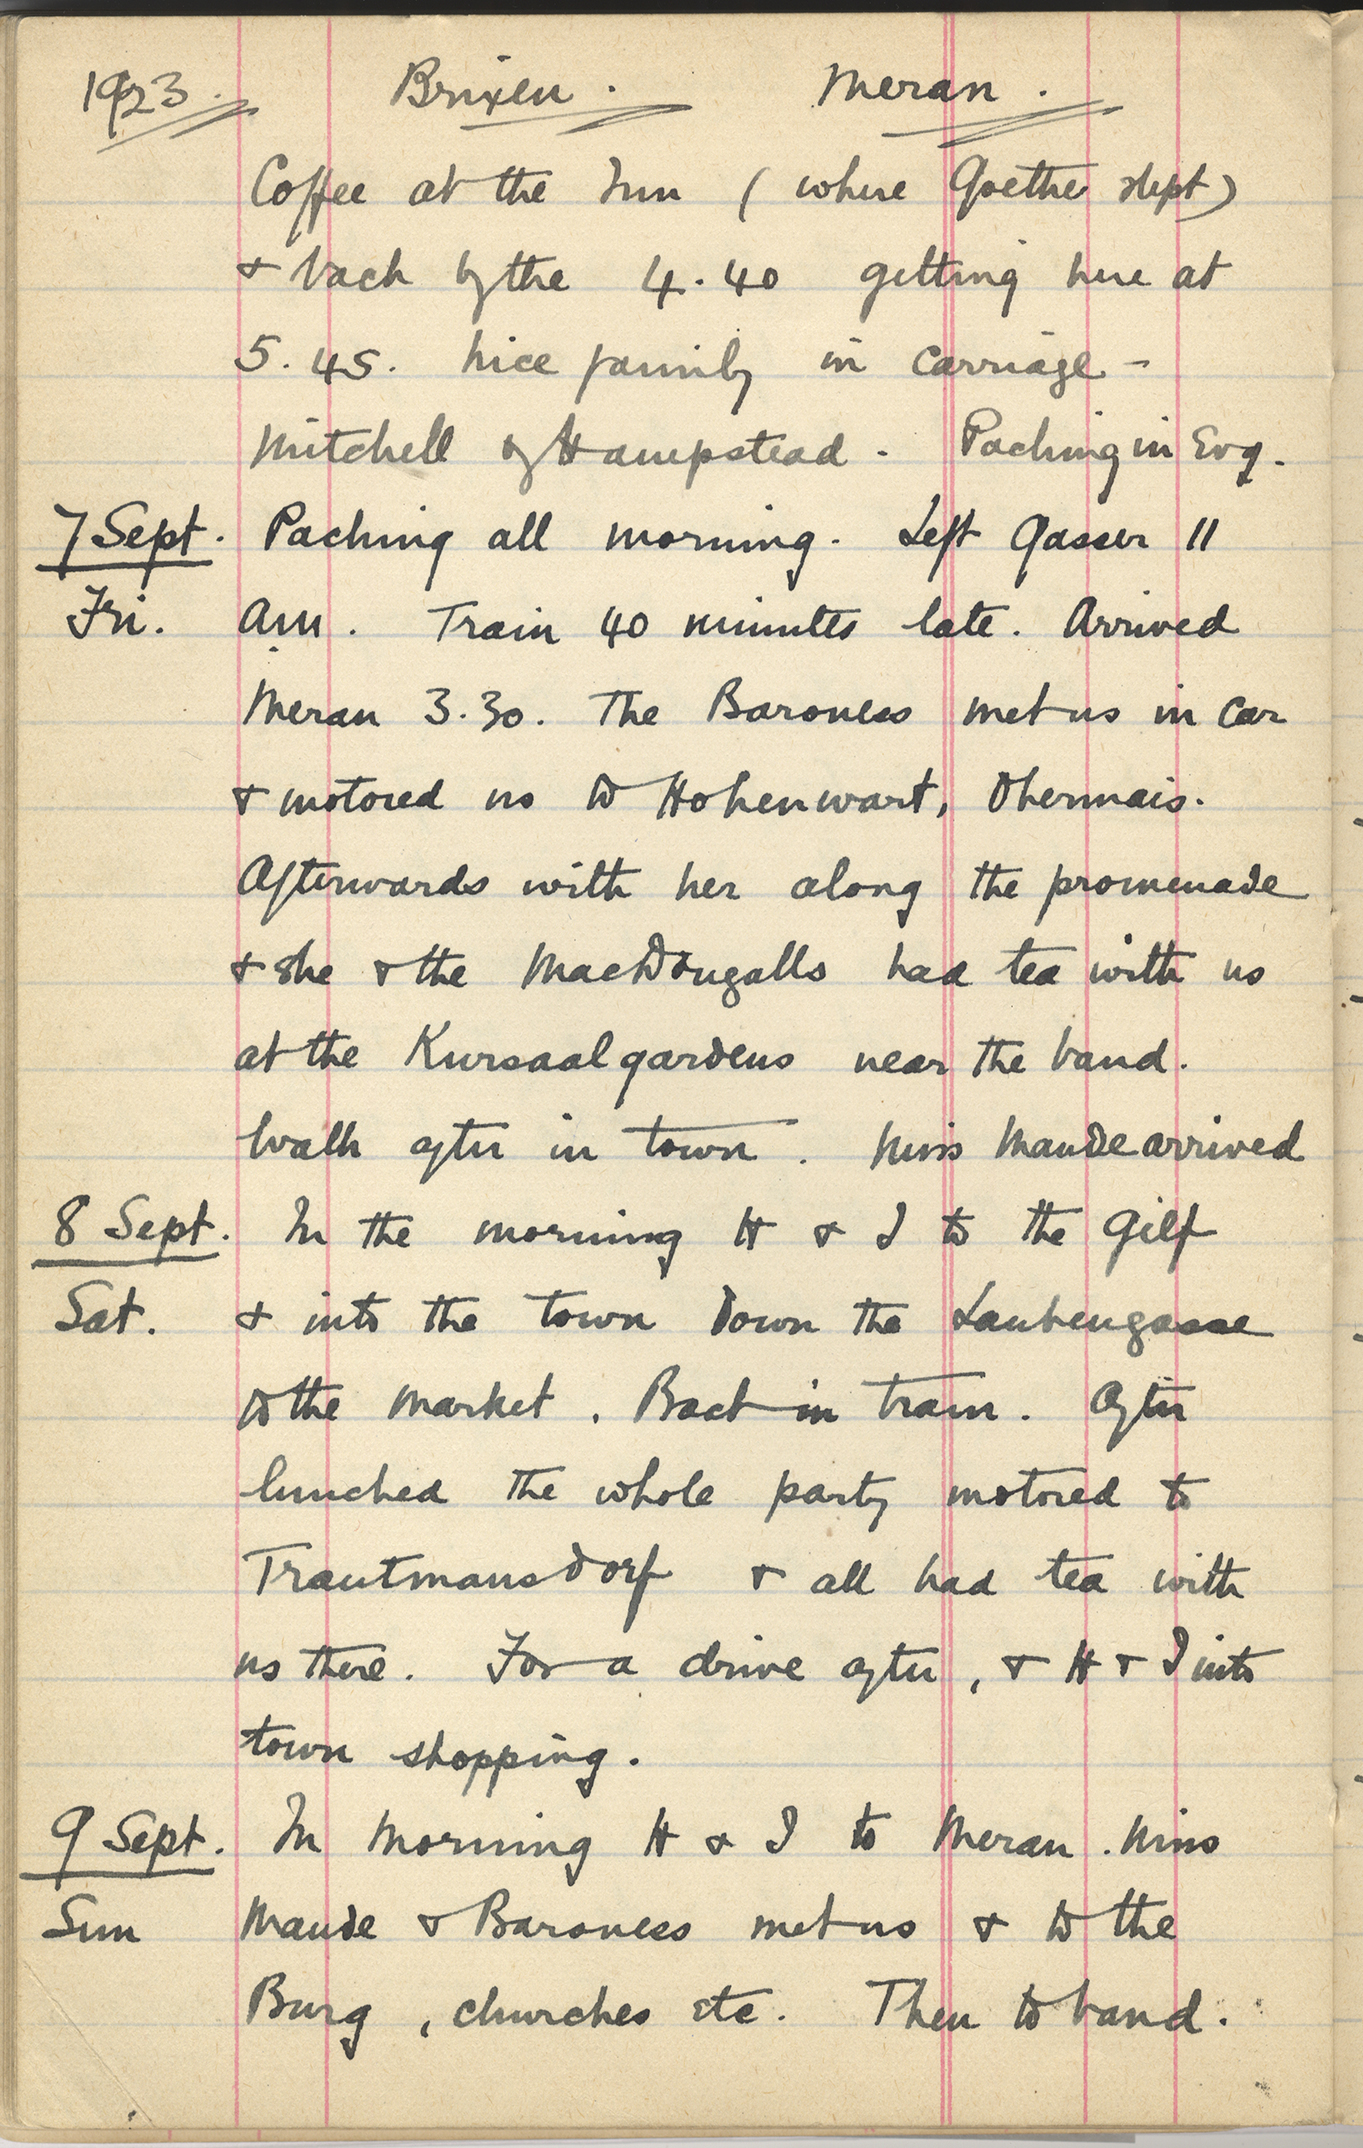 1923. Brixen. Meran.
Coffee at the Inn (where Goethe slept)
& back by the 4.40 getting here at
5.45. Nice family in carriage -
Mitchell of Hampstead. Packing in Evg.
7 Sept. Packing all morning. Left Gasser 11
Fri. am. Train 40 minutes late. Arrived
Meran 3.30. The Baroness met us in car
& motored us to Hohenwart, Obermais.
Afterwards with her along the promenade
& she & the MacDougalls had tea with us
at the Kursaal gardens near the band.
Walk after in town. Miss Maude arrived
8 Sept. In the morning H & I to the Gilf
Sat. & into the town down the Laubengasse
to the market. Back in tram. After
lunched the whole party motored to
Trautmansdorf & all had tea with
us there. For a drive after, & H & I into
town shopping.
9 Sept. In morning H & I to Meran. Miss
Sun Maude & Baroness met us & to the
Burg, churches etc. Then to band.